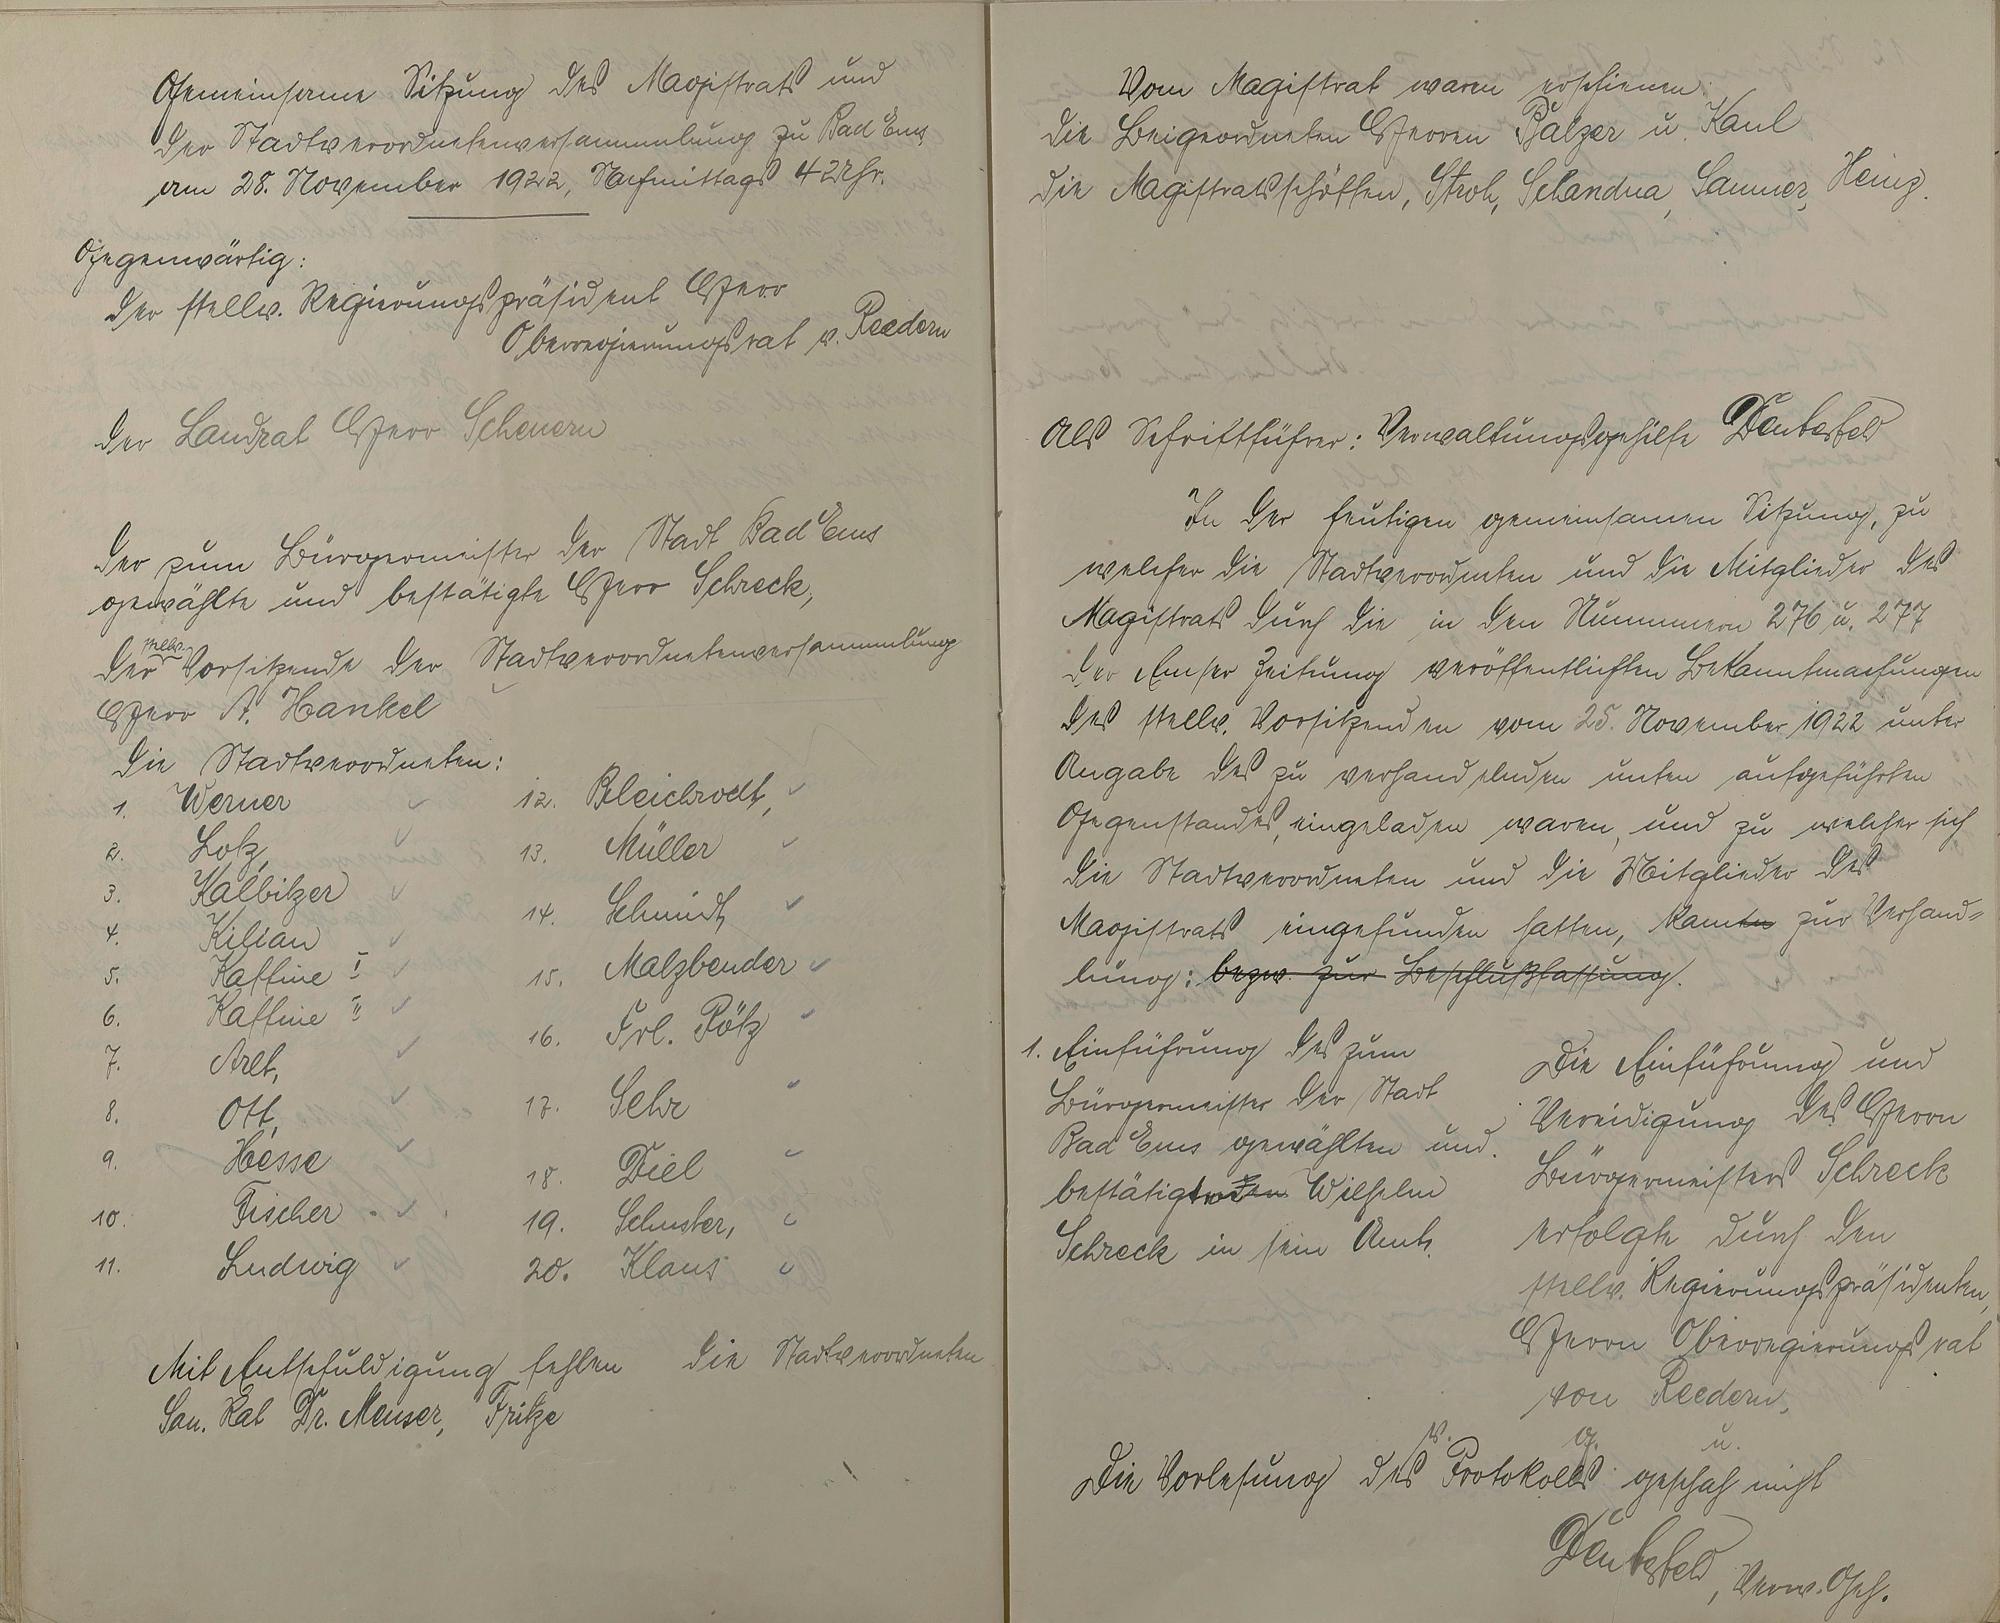 Gemeinsame Sitzung des Magistrats und
der Stadtverordnetenversammlung zu Bad Ems
am 28. November 1922, Nachmittags 4 Uhr.
Gegenwärtig:
der stellv. Regierungspräsident Herr
Oberregierungsrat v. Reedern
der Landrat Herr Scheuern
der zum Bürgermeister der Stadt Bad Ems
gewählte und bestätigte Herr Schreck,
der stellv. Vorsitzende der Stadtverordnetenversammlung
Herr A. Hankel
die Stadtverordneten:
1. Werner
2. Lotz,
3. Kalbitzer
4. Kilian
5. Kaffine I
6. Kaffine II
7. Arlt,
8. Ott,
9. Hesse
10. Fischer
11. Ludwig
12. Bleichrodt,
13. Müller
14. Schmidt,
15. Malzbender
16. Frl. Pötz
17. Sehr
18. Diel
19. Schuster,
20. Klaus
Mit Entschuldigung fehlen die Stadtverordneten
San. Rat Dr. Meuser, Fritze
Vom Magistrat waren erschienen:
die Beigeordneten Herren Balzer u. Kaul
die Magistratsschöffen, Stroh, Schandua, Sammer, Heinz.
Als Schriftführer: Verwaltungsgehilfe Deutesfeld
In der heutigen gemeinsamen Sitzung, zu
welcher die Stadtverordneten und die Mitglieder des
Magistrats durch die in den Nummern 276 u. 277
der Emser Zeitung veröffentlichten Bekanntmachungen
des stellv. Vorsitzenden vom 25. November 1922 unter
Angabe des zu verhandelnden unten aufgeführten
Gegenstandes, eingeladen waren, und zu welcher sich
die Stadtverordneten und die Mitglieder des
Magistrats eingefunden hatten, kamen zur Verhand=
lung: bezw. zur Beschlußfassung.
1. Einführung des zum
Bürgermeister der Stadt
Bad Ems gewählten und
bestätigten Wilhelm
Schreck in sein Amt.
Die Einführung und
Vereidigung des Herrn
Bürgermeisters Schreck
erfolgte durch den
stellv. Regierungspräsidenten,
Herrn Oberregierungsrat
von Reedern.
v. g. u.
Die Vorlesung des Protokolls geschah nicht
Deutesfeld, Verw. Geh.